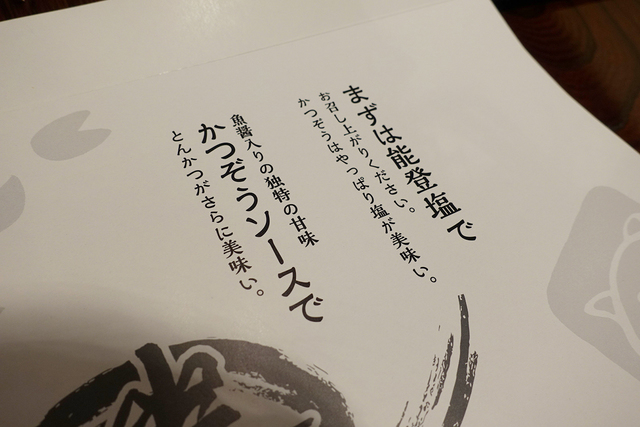 まずは能登塩で
お召し上がりください。
かつぞうはやっぱり塩が美味い。
魚醤入りの独特の甘味
かつぞうソースで
とんかつがさらに美味い。